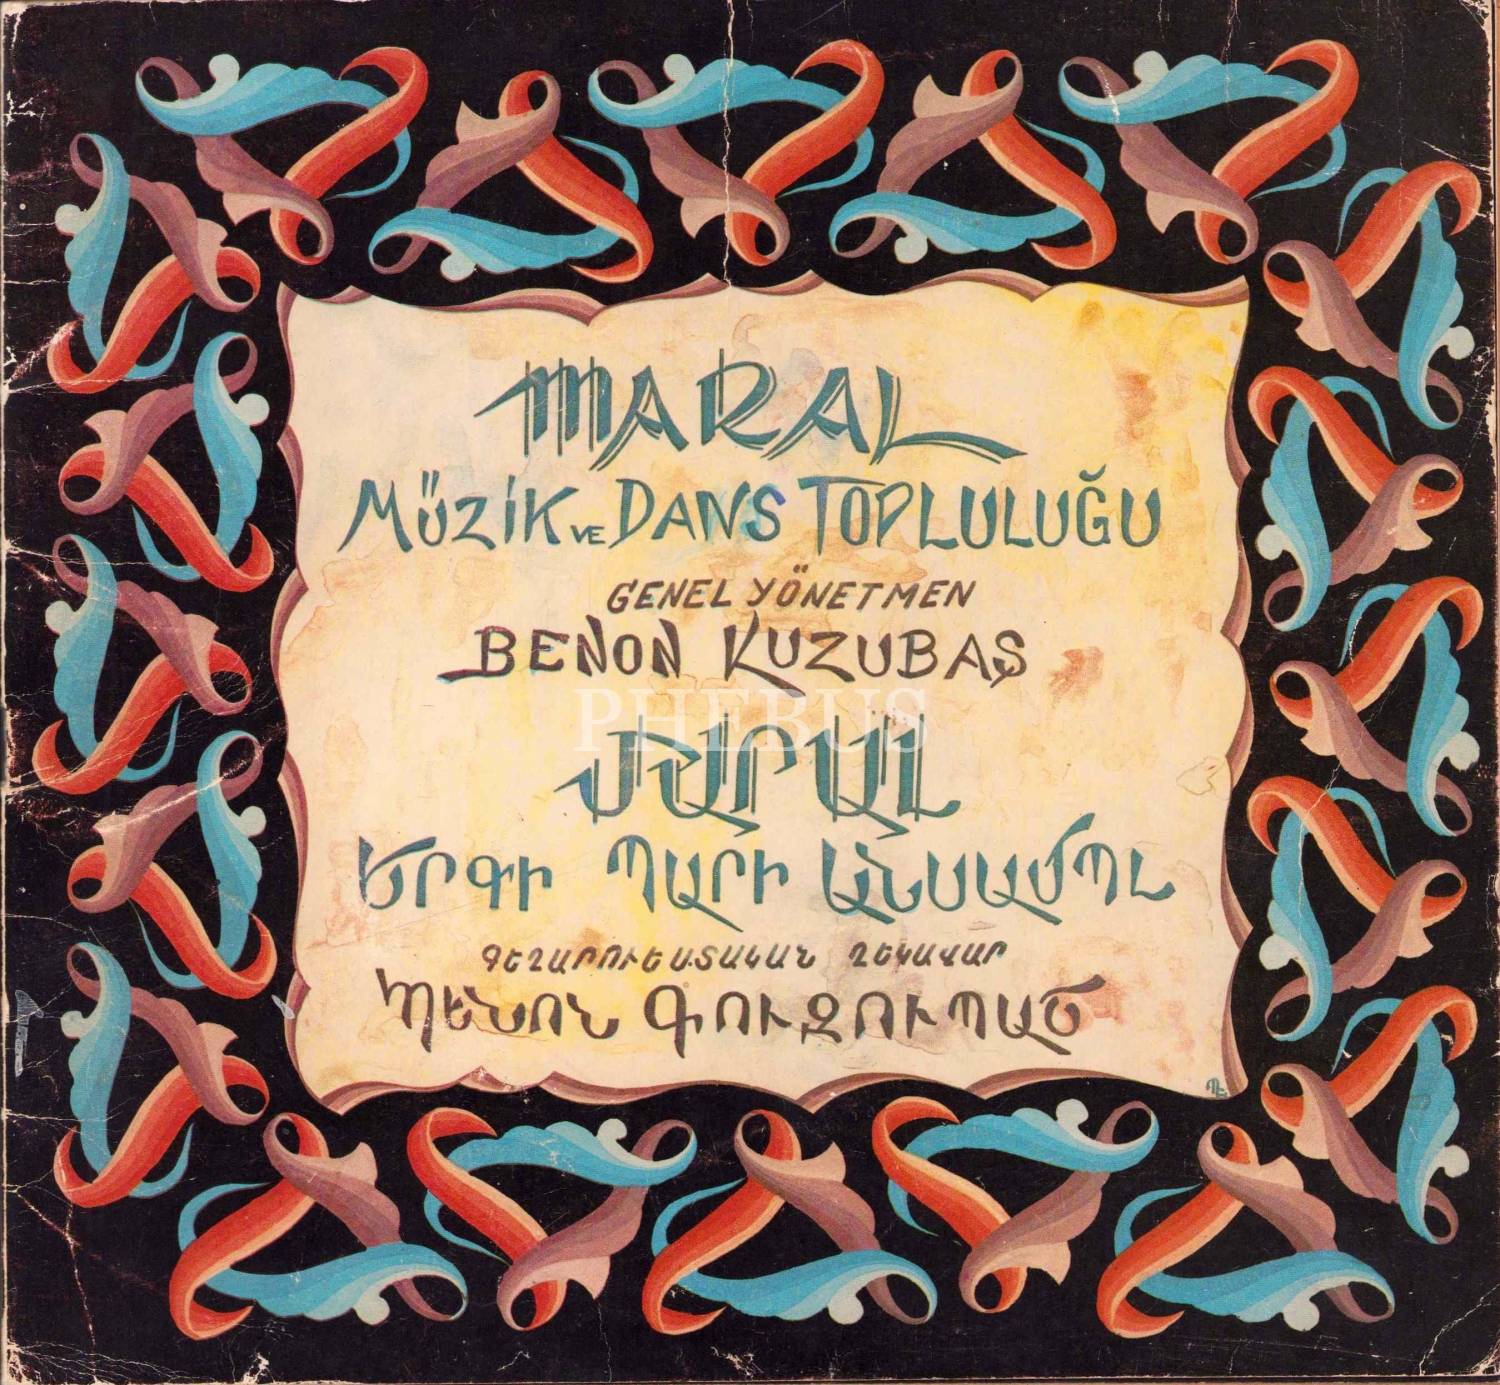 MARAL
MÜZİK VE DANS TOPLULUĞU
GENEL YÖNETMEN
BENON KUZUBAŞ
PHEBUS
ՄԱՐԱԼ
ԵՐԳԻ ՊԱՐԻ ԱՆՍԱՄՊԼ
ԳԵՂԱՐՈՒԵՍՏԱԿԱՆ ՂԵԿԱՎԱՐ
ՊԵՆՈՆ ԳՈՒԶՈՒՊԱՇ